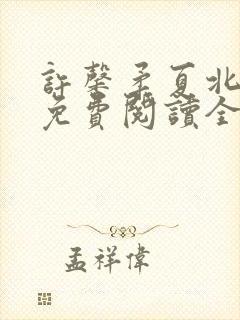 許馨矛夏北
免費閱讀全
孟祥偉